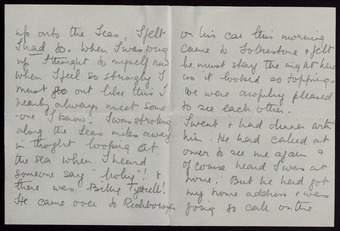 up onto the Leas, I felt
I had to. When I was going
up I thought to myself now
when I feel so strongly I
must go out like this I
nearly always meet some-
-one I know. I was strolling
along the Leas miles away
in thought looking at
the sea when I heard
someone say "Moky"! &
there was Billy Tyrrell!
He came over to Richborough
on his car this morning
came to Folkestone & felt
he must stay the night here
as it looked so topping.
We were awfully pleased
to see each other.
I went & had dinner with
him. He had called at
once to see me again &
of course heard I was at
home. But he had got
my home address & was
going to call on the